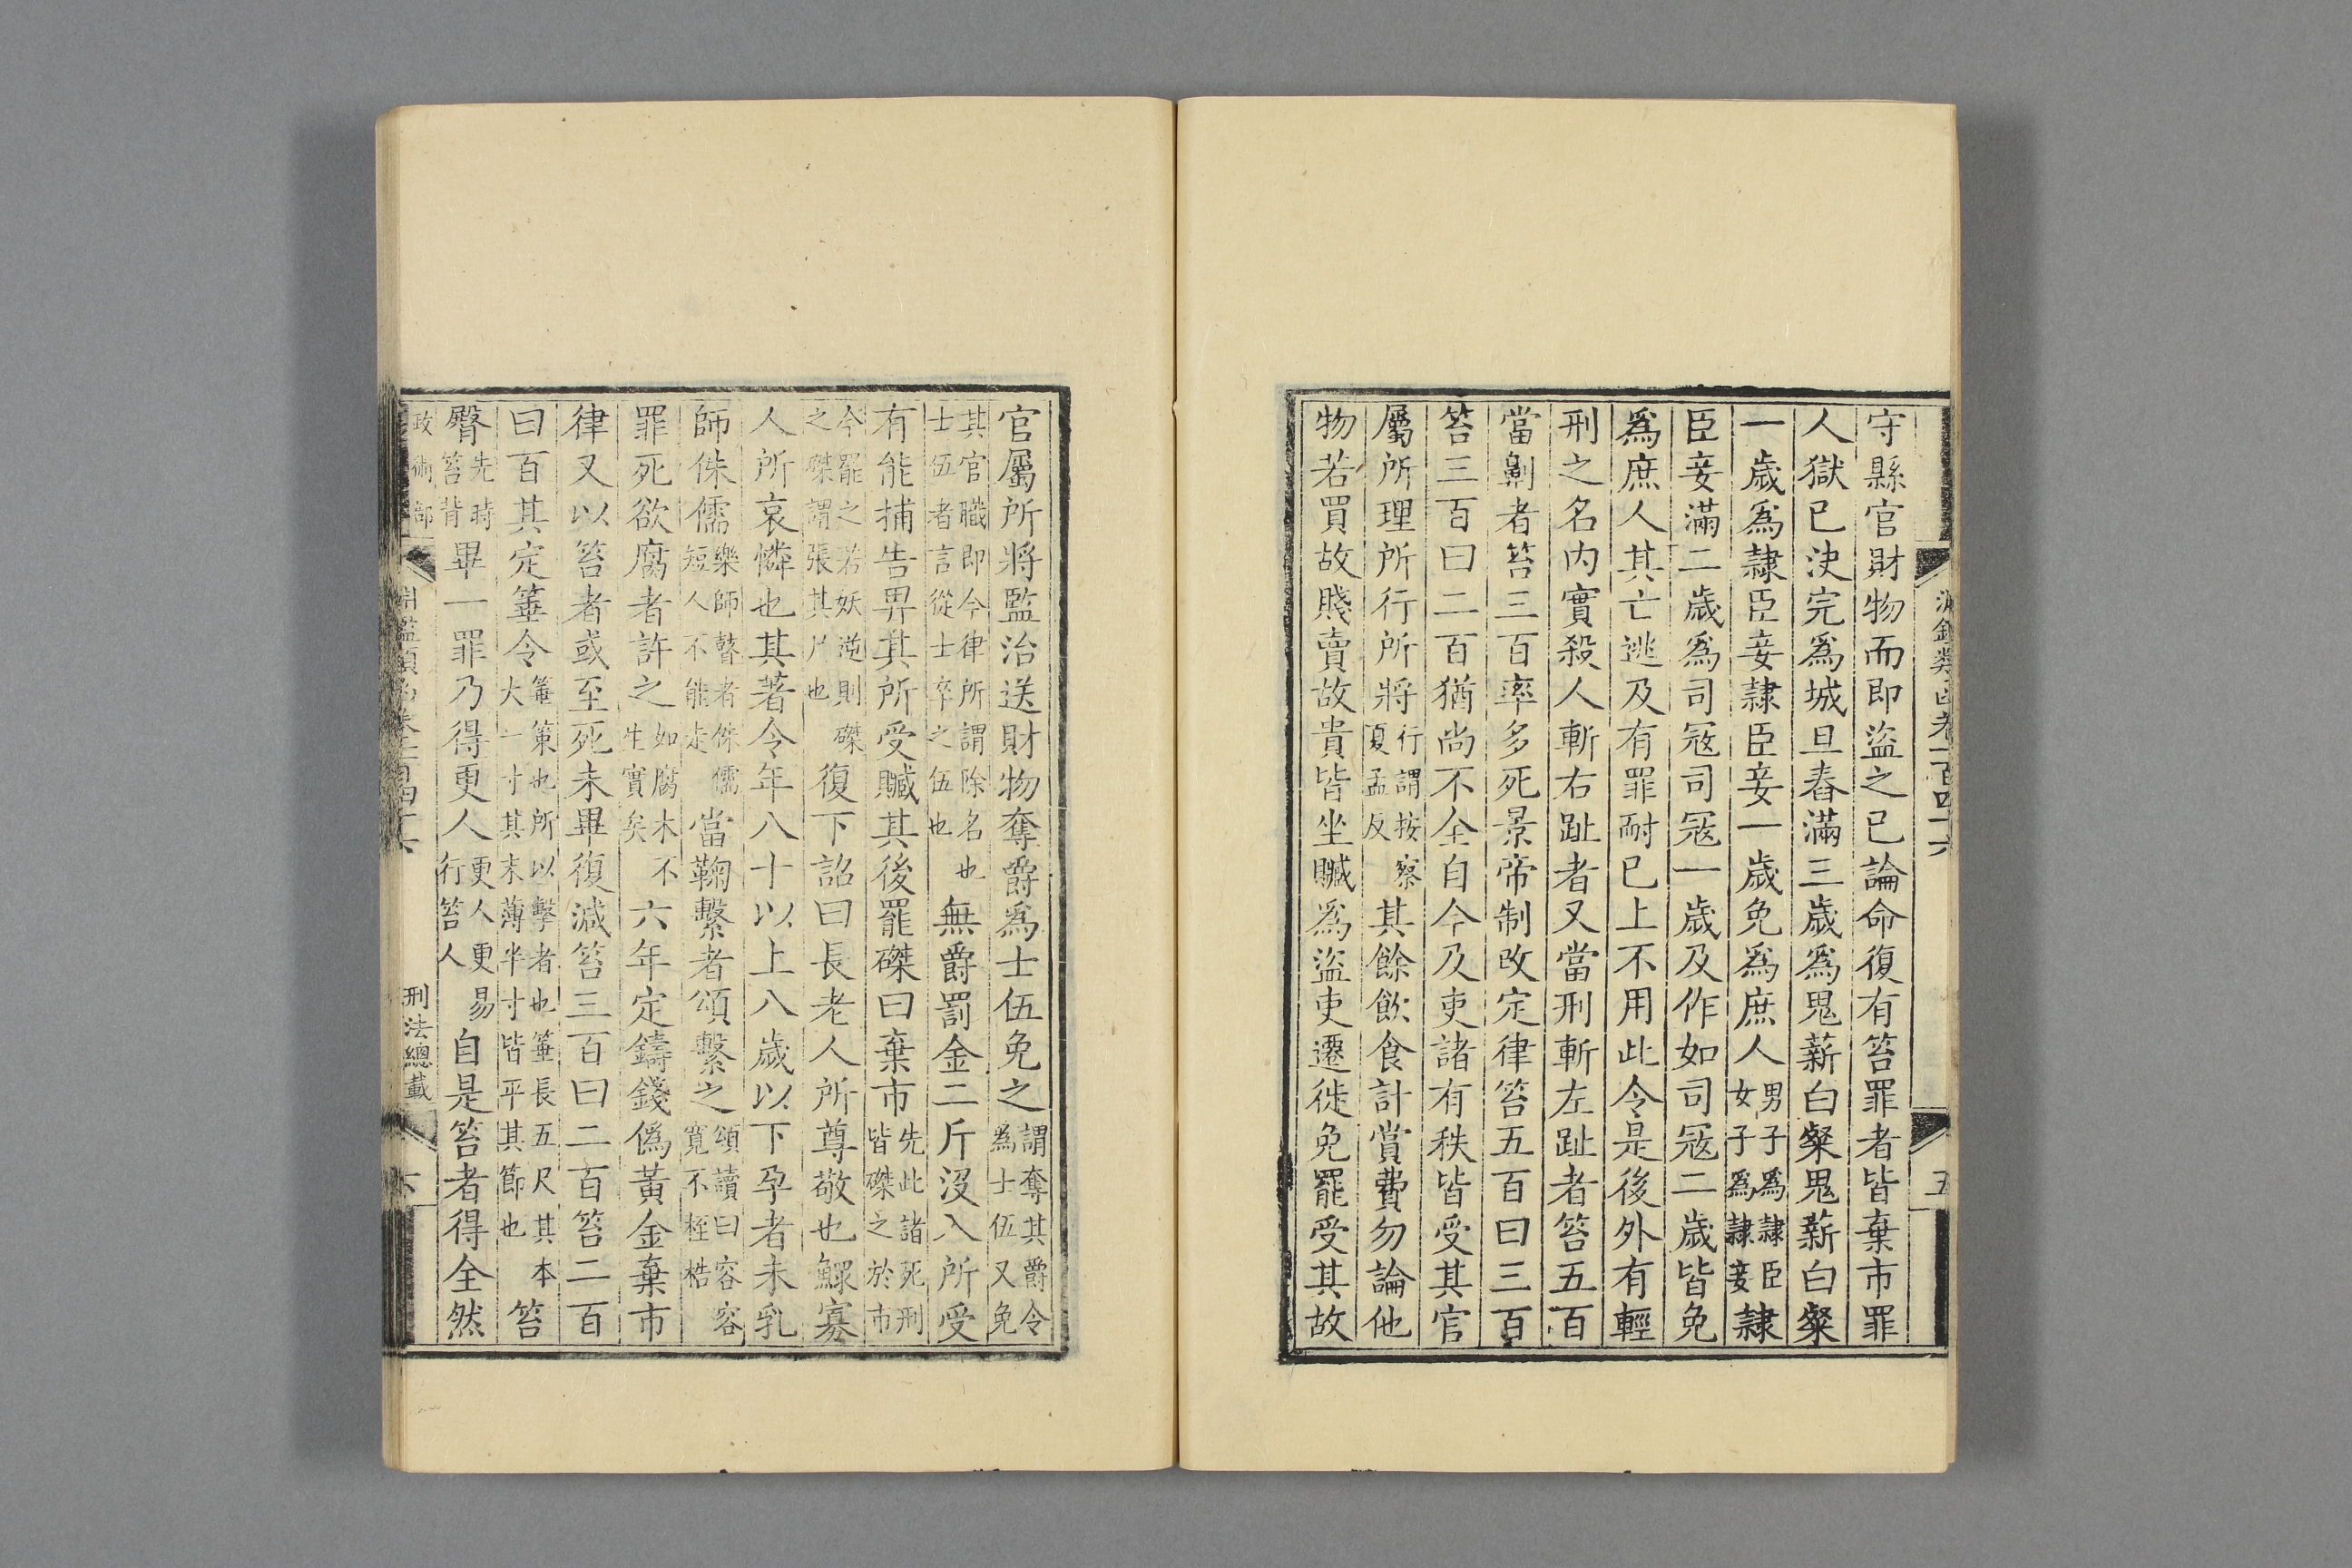 守縣官財物而即盜之已論命復有笞罪者皆棄市罪
人獄已決完爲城旦舂滿三歲爲鬼薪白粲鬼薪白粲
一歲爲隷臣妾隷臣妾一歲免爲庶人男子爲隷臣女子爲隷妾隷
臣妾滿二歲爲司冦司冦一歲及作如司冦二歲皆免
爲庶人其亡逃及有罪耐已上不用此令是後外有輕
刑之名内實殺人斬右趾者又當刑斬左趾者笞五百
當劓者笞三百率多死景帝制改定律笞五百曰三百
笞三百曰二百猶尚不全自今及吏諸有秩皆受其官
屬所理所行所將行謂按察夏孟反其餘飲食計賞費勿論他
物若買故賤賣故貴皆坐贓爲盜吏遷徙免罷受其故
官屬所將監治送財物奪爵爲士伍免之謂奪其爵令爲士伍又免
其官職即今律所謂除名也士伍者言從士卒之伍也無爵罰金二斤沒入所受
有能捕告畀其所受贓其後罷磔曰棄市先此諸死刑皆磔之於市
今罷之若妖逆則磔之磔謂張其尸也復下詔曰長老人所尊敬也鰥寡
人所哀憐也其著令年八十以上八歲以下孕者未乳
師侏儒樂師瞽者侏儒短人不能走當鞠繫者頌繫之頌讀曰容容寬不桎梏
罪死欲腐者許之如腐木不生實矣六年定鑄錢僞黃金棄市
律又以笞者或至死未畢復減笞三百曰二百笞二百
曰百其定箠令箠策也所以擊者也箠長五尺其本大一寸其末薄半寸皆平其節也笞
臀先時笞背畢一罪乃得更人更人更易行笞人自是笞者得全然
政術部
刑法總載